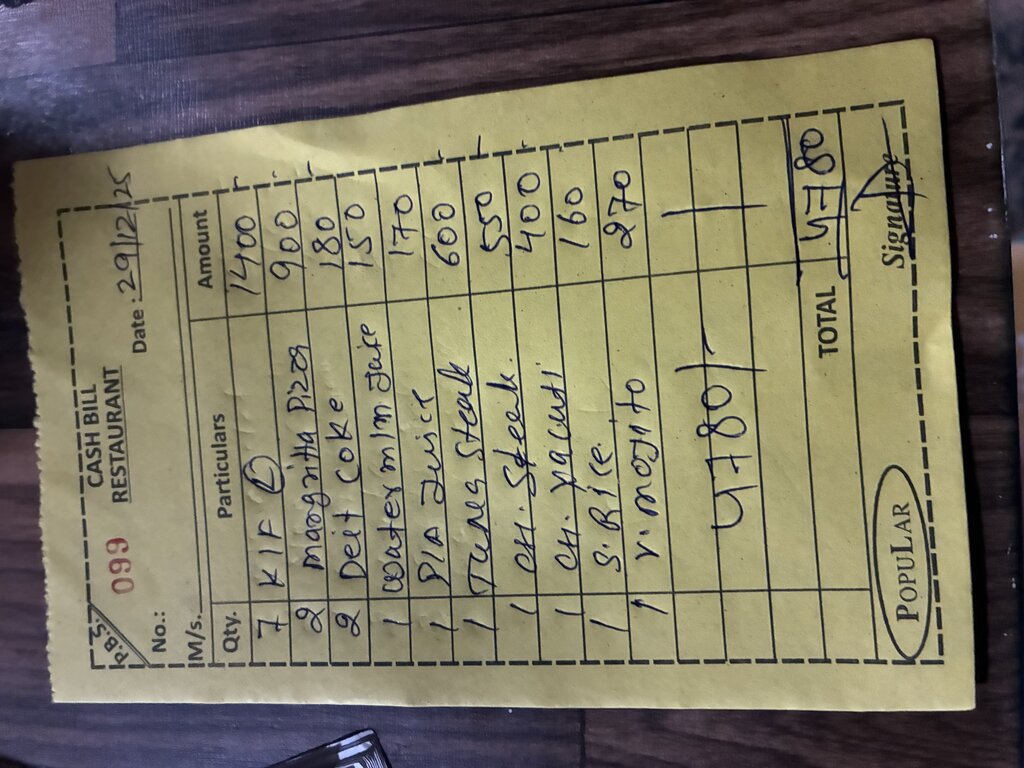 P.B.S.
CASH BILL
099 RESTAURANT
No.: Date: 29/12/25
M/s.
Qty. Particulars Amount
7 KIF L 1400
2 Margritta Pizza 900
2 Deit Coke 180
1 Watermlm Juice 150
1 P/A Juice 170
1 Tuna Steak 600
1 CH. Steak 550
1 CH. Xacuti 400
1 S. Rice 160
1 V. mojito 270
4780/-
TOTAL 4780
POPULAR Signature